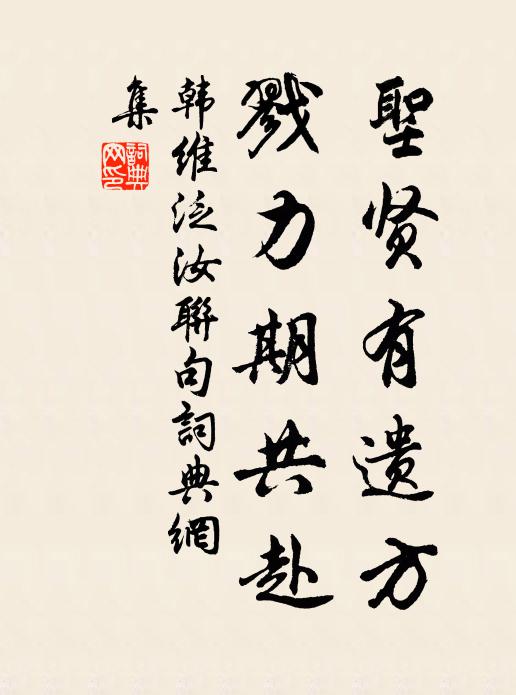 聖贤有遗方
戮力期共赴
韩维泛汝聯句詞典網
集
詞典
网印